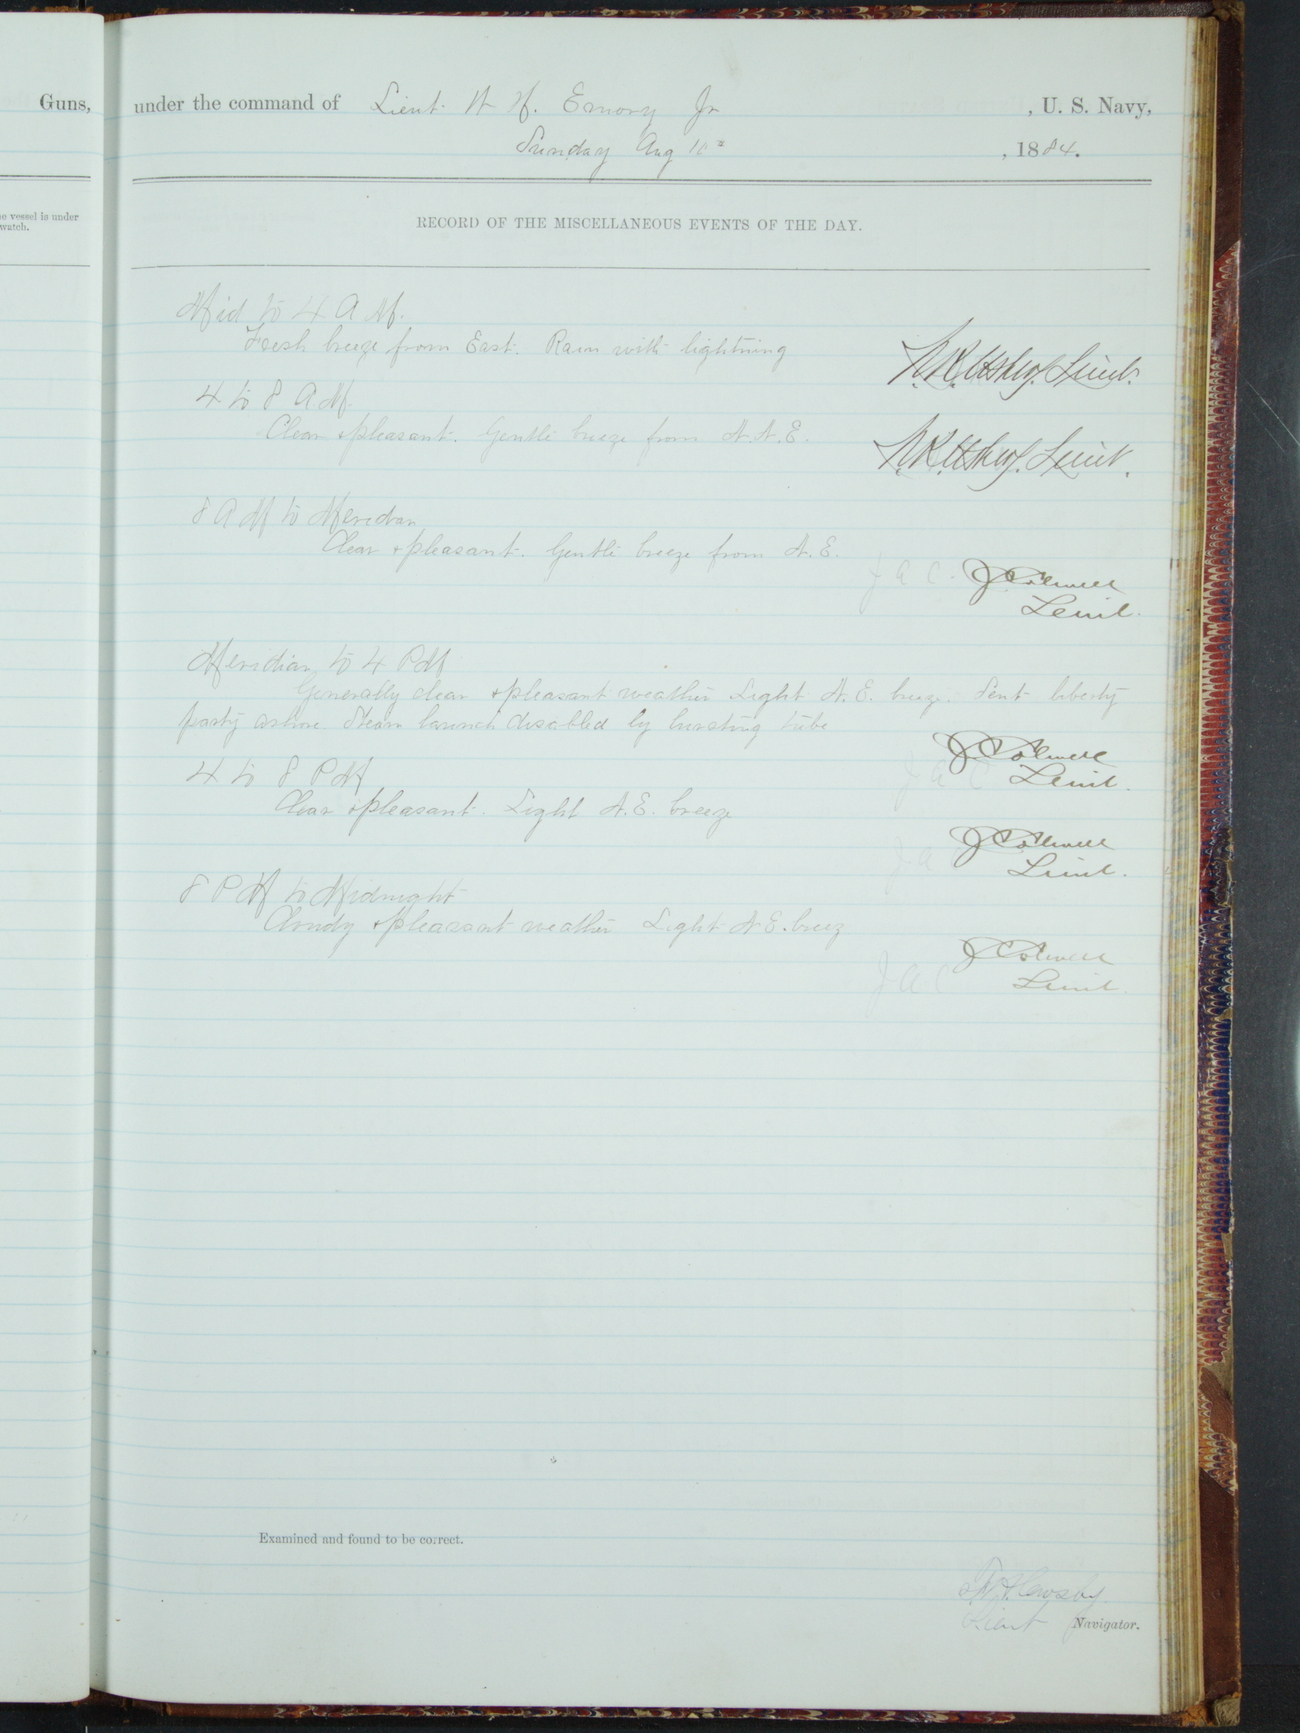 Guns,
under the command of Lieut W H. Emory Jr , U. S. Navy,
Sunday Aug 10th , 1884.
vessel is under
watch.
RECORD OF THE MISCELLANEOUS EVENTS OF THE DAY.
Mid to 4 A M.
Fresh breeze from East. Rain with lightning
N.R. Usher, Lieut.
4 to 8 A M.
Clear & pleasant. Gentle breeze from N.N.E.
N.R. Usher, Lieut.
8 A M to Meridian
Clear & pleasant. Gentle breeze from N.E.
J A C. J C Colwell
Lieut.
Meridian to 4 P M
Generally clear & pleasant weather Light N.E. breeze. Sent liberty
party ashore. Steam launch disabled by bursting tube
J A C J C Colwell
Lieut.
4 to 8 P M
Clear & pleasant. Light N.E. breeze
J A J C Colwell
Lieut.
8 P M to Midnight
Cloudy & pleasant weather Light N.E. breeze
J A C J C Colwell
Lieut.
Examined and found to be correct.
Lieut Navigator.